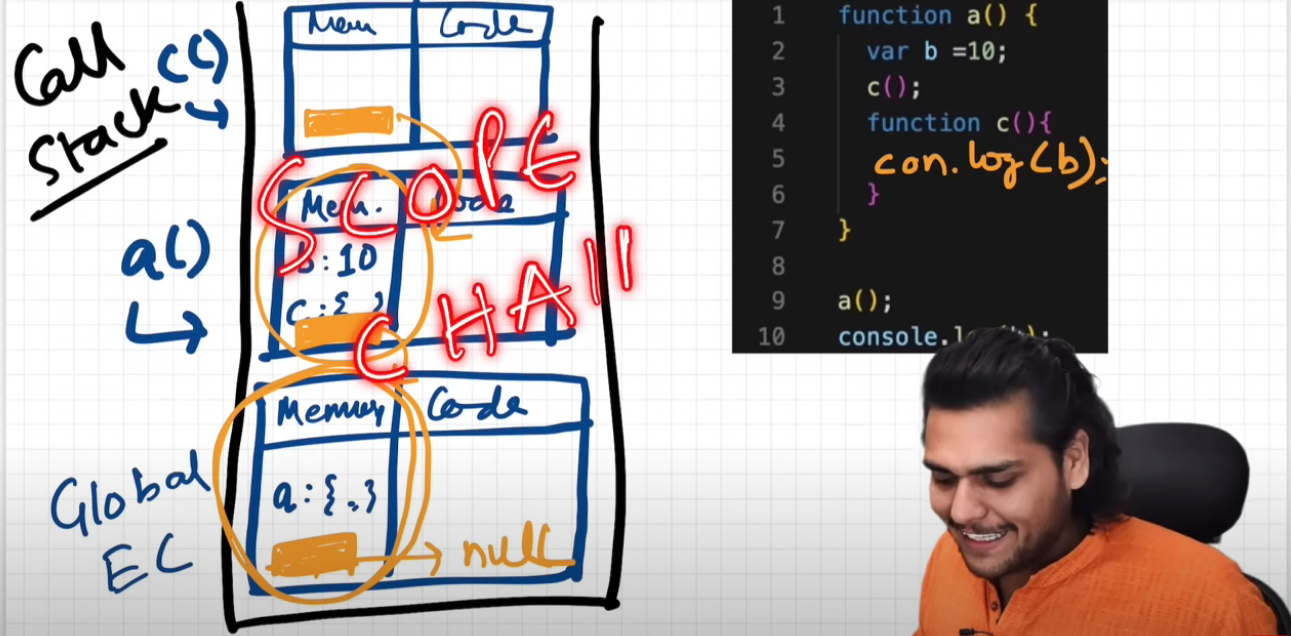 Call
Stack
c()
Mem
Code
SCOPE
CHAIN
a()
Mem.
Code
b:10
c:{ }
Global
EC
Memory
Code
a:{.}
null
1 function a() {
2 var b =10;
3 c();
4 function c(){
5 con.log(b);
6 }
7 }
8
9 a();
10 console.l